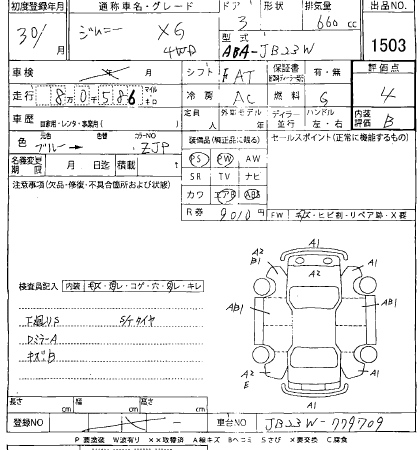 初度登録年月 通称車名・グレード ドア 形状 排気量 出品NO.
30/ ジムニー XG 4WD 3 660 cc 1503
型式 ABA-JB23W
車検 年 月 シフト FAT 保証書 有・無 評価点 4
走行 8万0千586 マイル キロ 冷房 AC 燃料 G
車歴 自家用・レンタ・事業用( ) 定員 人 外車モデル 年 ディーラー 並行 ハンドル 左・右 内装評価 B
色 元色 ブルー カラーNO ZJP 装備品(純正品に限る) セールスポイント(正常に機能するもの)
名義変更期限 月 日迄 積載 t PS PW AW
注意事項(欠品・修復・不具合箇所および状態) SR TV ナビ
カワ エアB ABS
R券 9010円 FW キズ・ヒビ割・リペア跡・X要
A1
A2 B1 A1
検査員記入 内装 キズ・汚レ・コゲ・穴・切レ・キレ
AB1 AB1
下廻りS S/Kタイヤ
DミラーA
キズB
A2 E A1
A1
長さ cm 幅 cm 高さ cm
登録NO 車台NO JB23W-779709
P 要塗装 W波有り ××取替済 A線キズ Bヘコミ Sさび ×要交換 C腐食